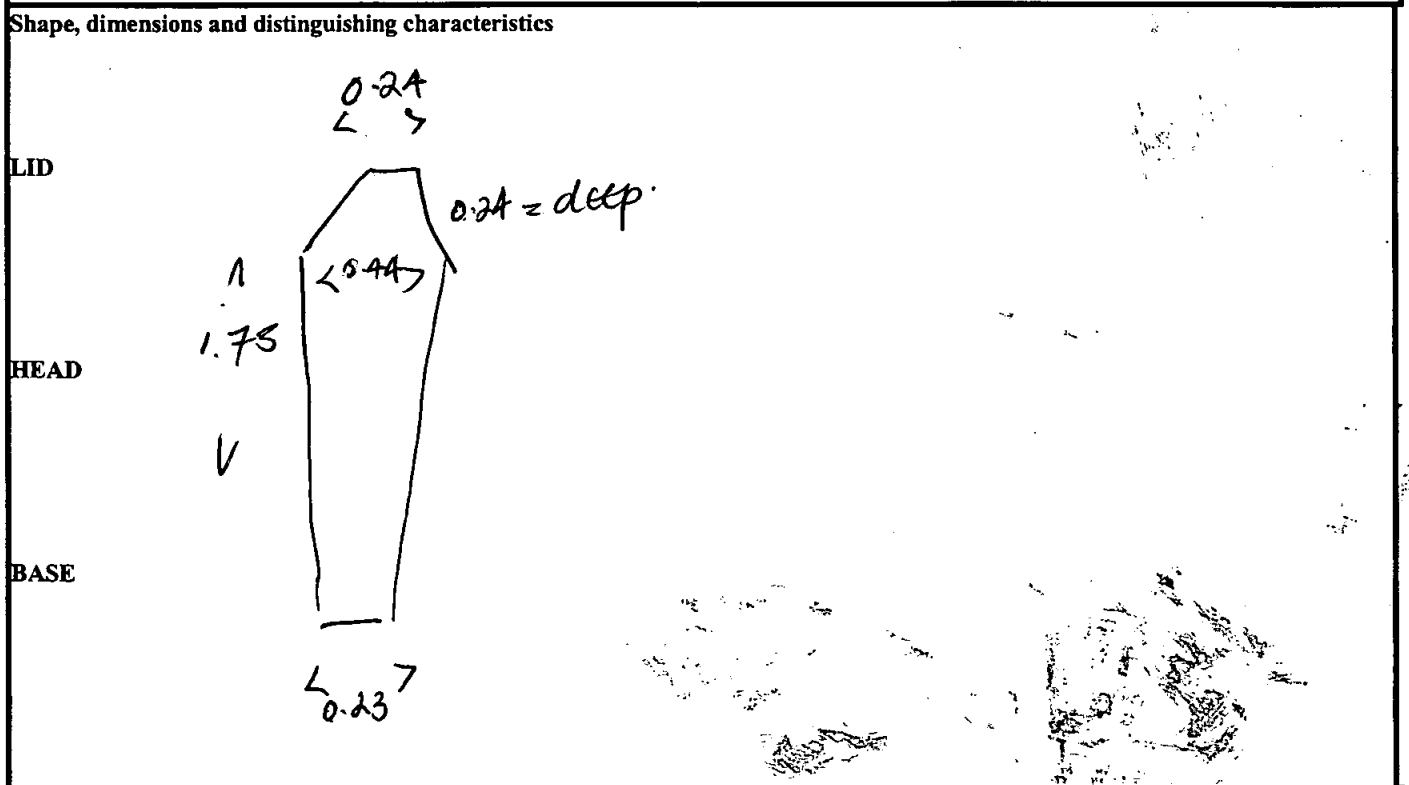 Shape, dimensions and distinguishing characteristics
0.24
LID
0.24 = deep.
0.44
1.75
HEAD
BASE
0.23